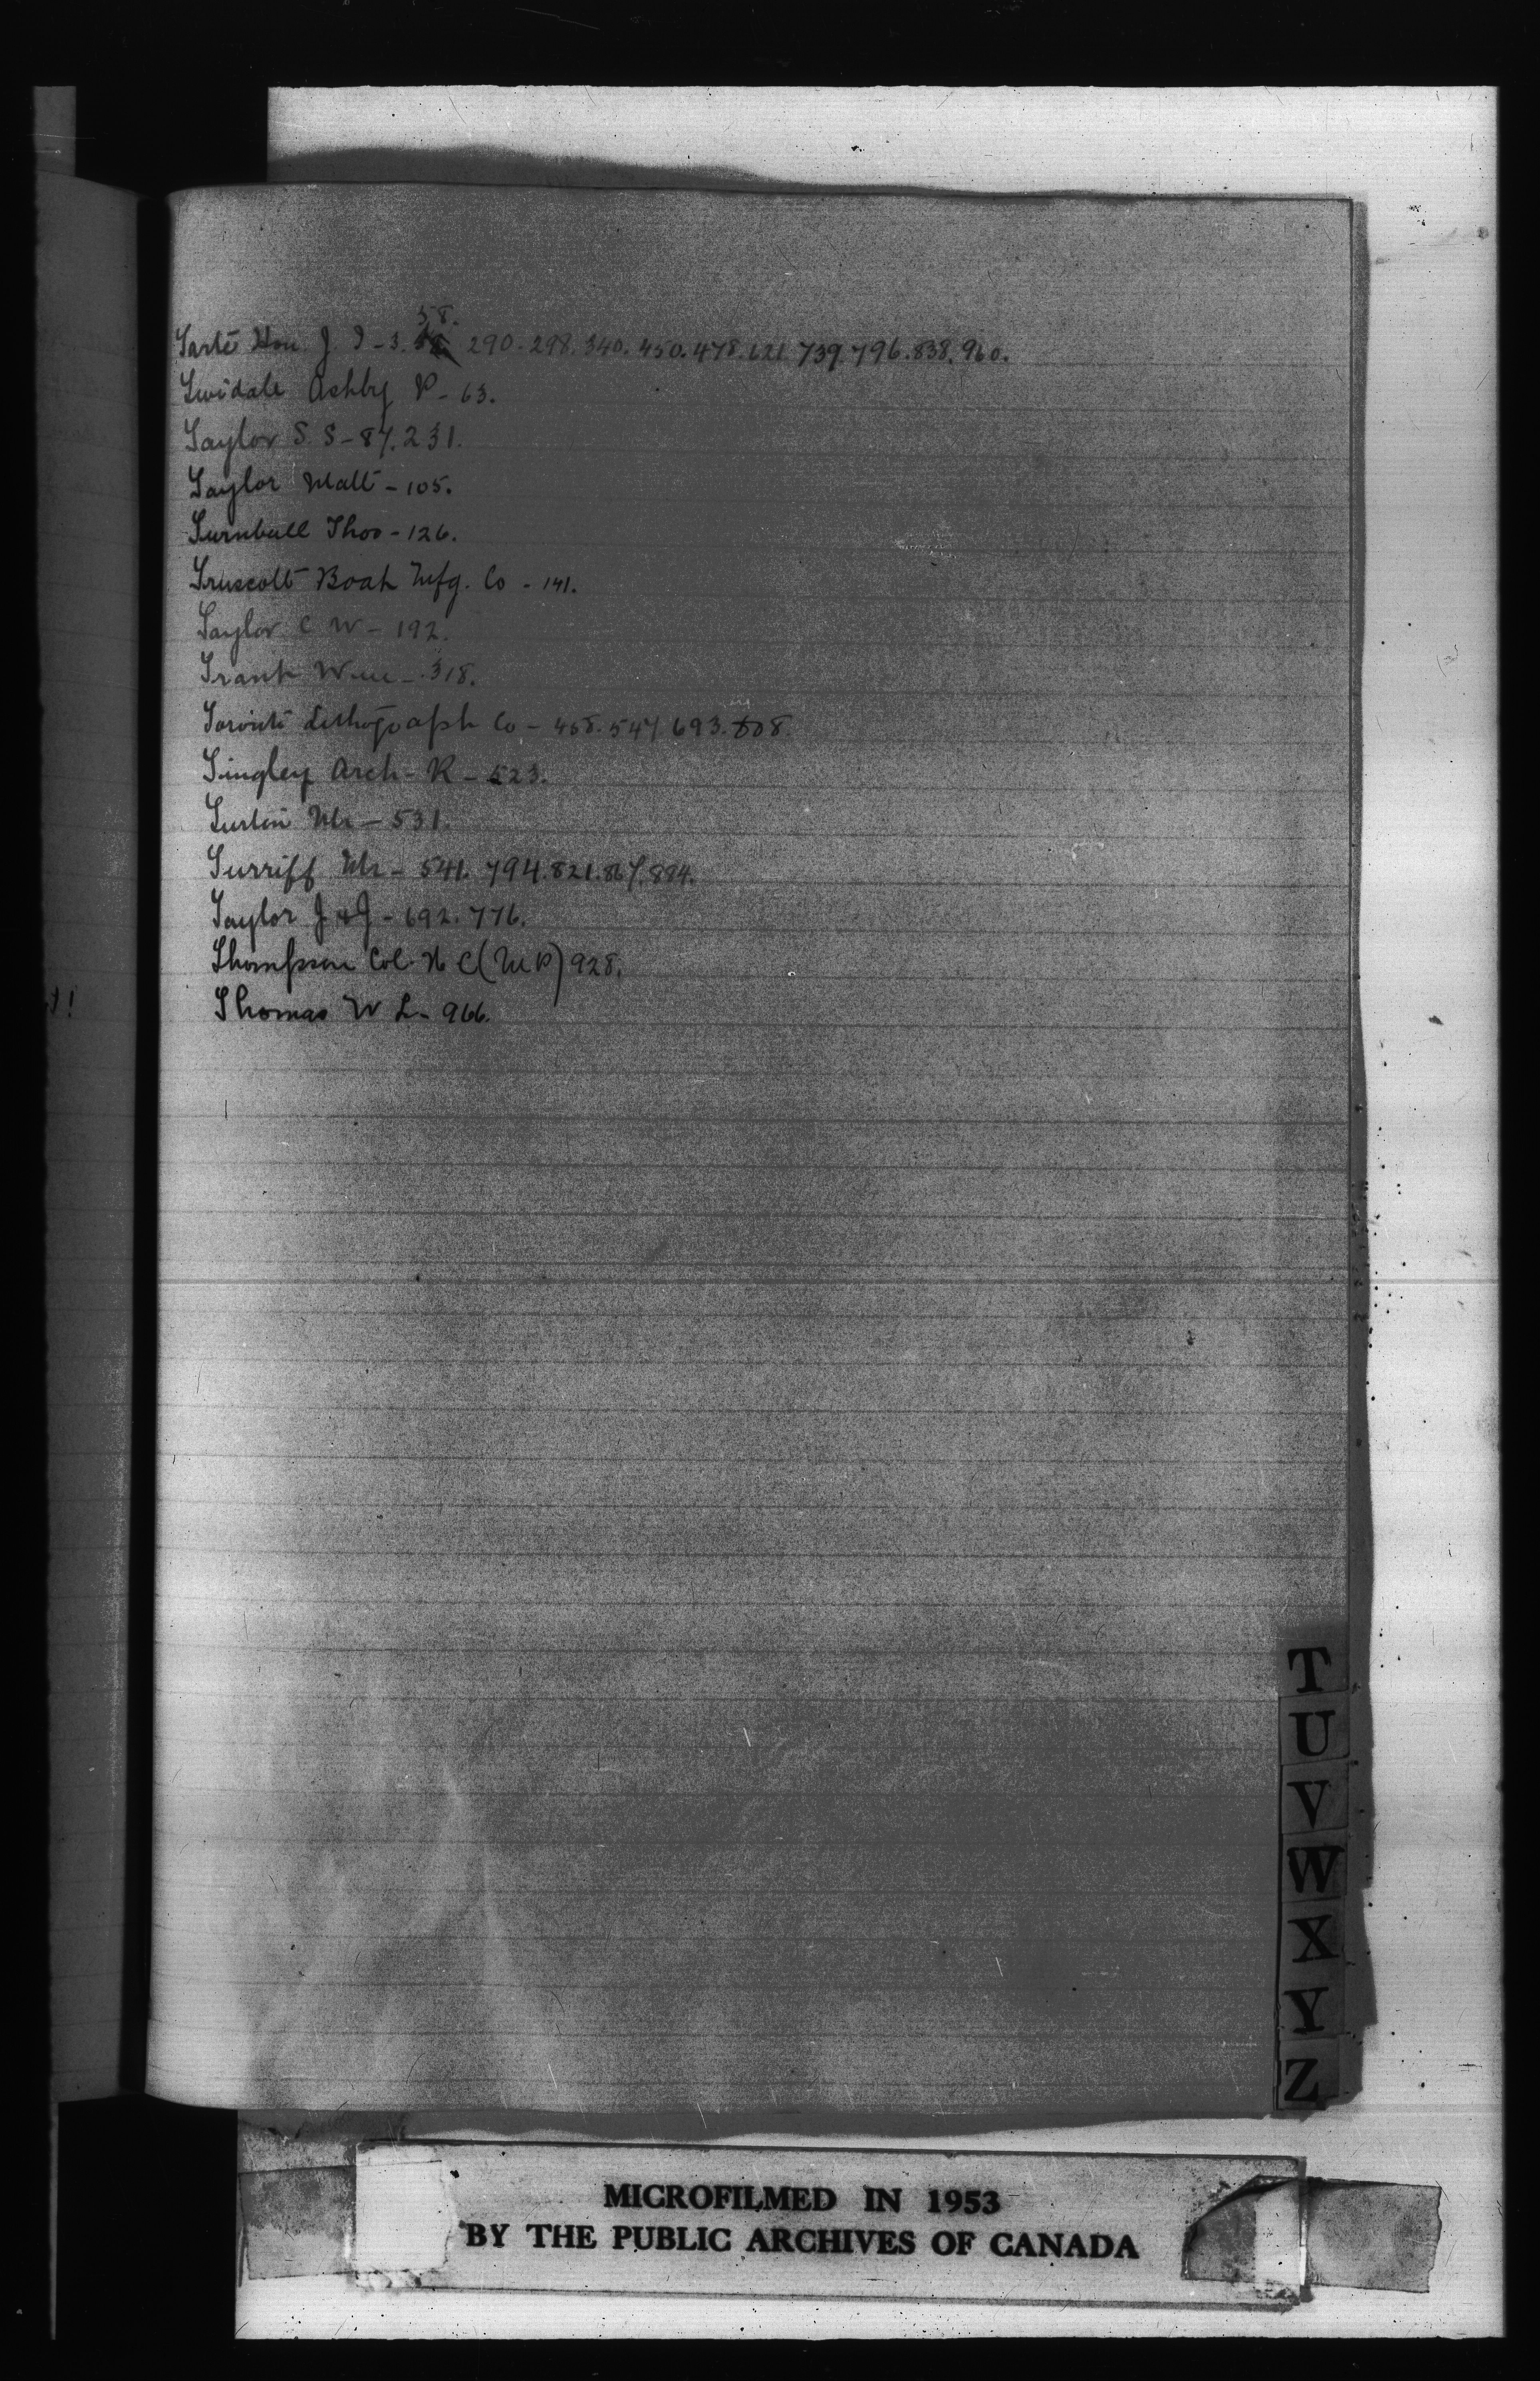 58.
Tarte Hon. J. I - 3. 290 - 298. 340. 450. 478. 621. 739. 796. 838. 960.
Twidale Ashby P - 63.
Taylor S. S - 87. 231.
Taylor Matt - 105.
Turnbull Thos - 126.
Truscott Boat Mfg. Co - 141.
Taylor C W - 192.
Trant Wm - 318.
Toronto Lithograph Co - 458. 547 693. 808.
Tingley Arch - R - 523.
Turton Mr - 531.
Turriff Mr - 541. 794. 821. 867. 884.
Taylor J & J - 692. 776.
Thompson Col. N C (M P) 928.
Thomas W L - 966.
T
U
V
W
X
Y
Z
MICROFILMED IN 1953
BY THE PUBLIC ARCHIVES OF CANADA